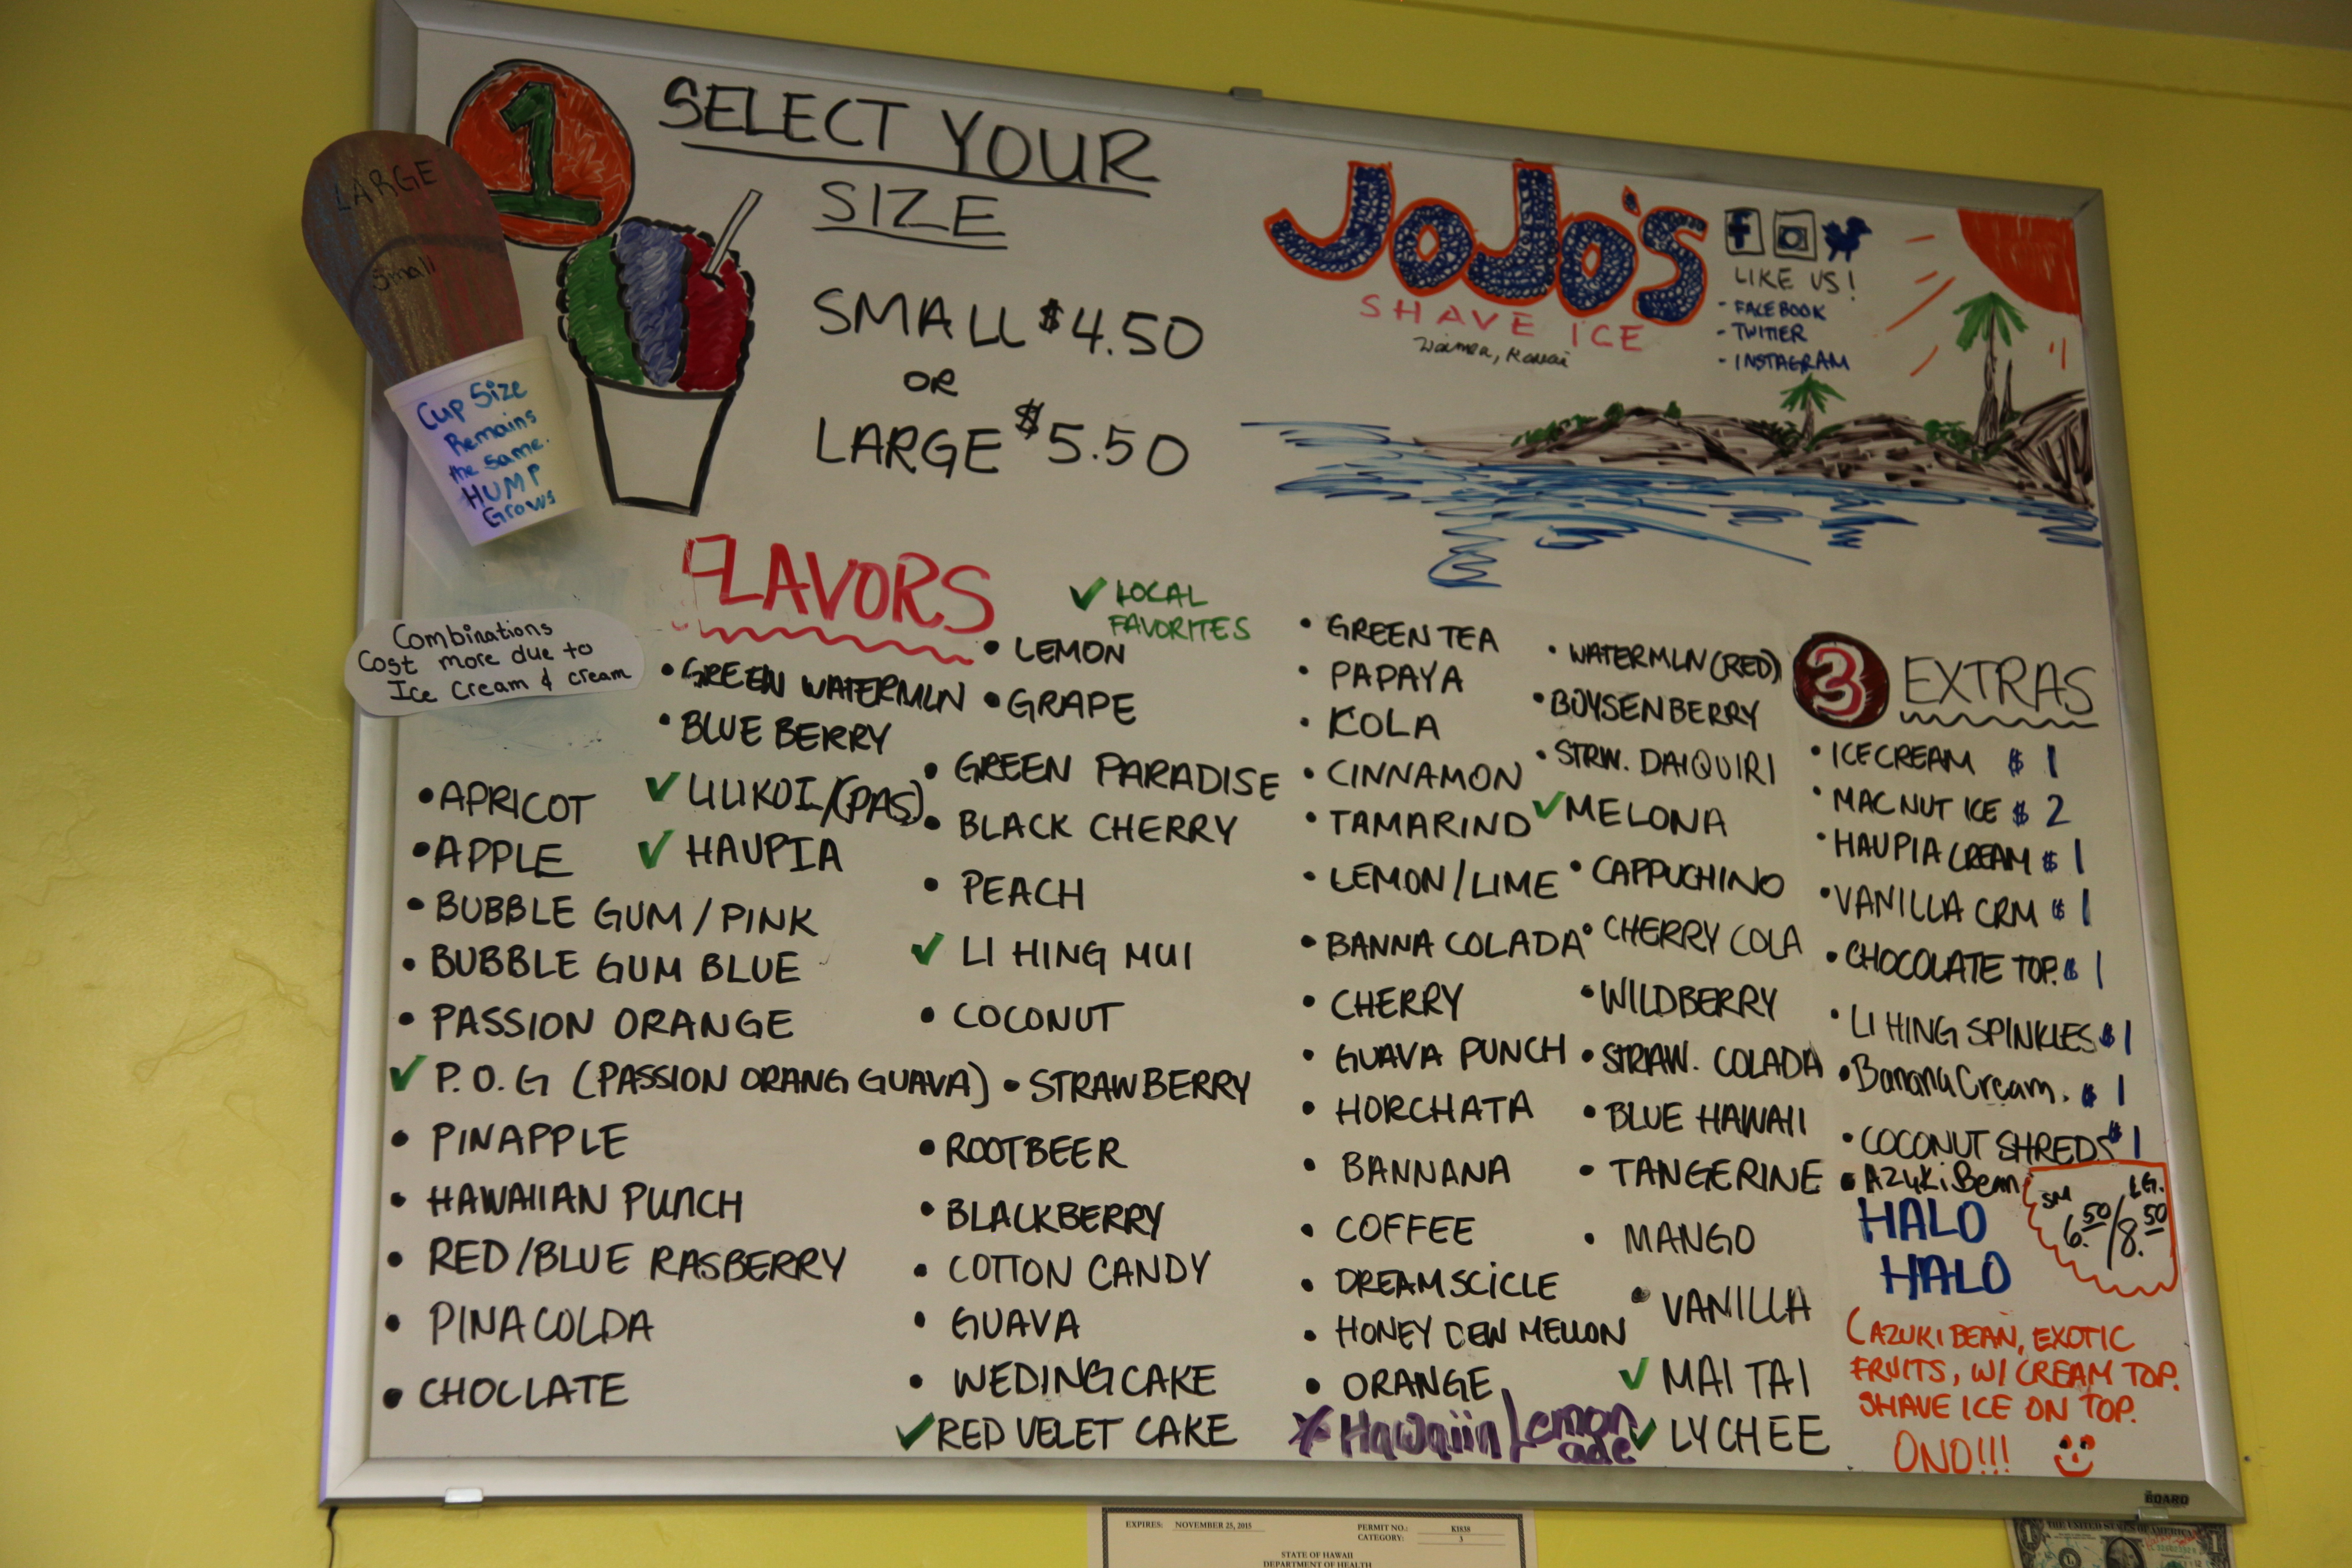 1
SELECT YOUR
SIZE
LARGE
Small
Cup Size
Remains
the same.
HUMP
Grows
SMALL $4.50
OR
LARGE $5.50
JoJo's
SHAVE ICE
Waimea, Kauai
f
LIKE US!
- FACEBOOK
- TWITTER
- INSTAGRAM
FLAVORS
✓ LOCAL
FAVORITES
Combinations
Cost more due to
Ice Cream & cream
• GREEN WATERMLN
• BLUE BERRY
✓ LILIKOI/(PAS)
✓ HAUPIA
• APRICOT
• APPLE
• BUBBLE GUM / PINK
• BUBBLE GUM BLUE
• PASSION ORANGE
✓ P.O.G (PASSION ORANG GUAVA)
• PINAPPLE
• HAWAIIAN PUNCH
• RED/BLUE RASBERRY
• PINA COLDA
• CHOCLATE
• LEMON
• GRAPE
• GREEN PARADISE
• BLACK CHERRY
• PEACH
✓ LI HING MUI
• COCONUT
• STRAWBERRY
• ROOTBEER
• BLACKBERRY
• COTTON CANDY
• GUAVA
• WEDING CAKE
✓ RED VELET CAKE
• GREEN TEA
• PAPAYA
• KOLA
• CINNAMON
• TAMARIND
• LEMON/LIME
• BANNA COLADA
• CHERRY
• GUAVA PUNCH
• HORCHATA
• BANNANA
• COFFEE
• DREAMSCICLE
• HONEY DEW MELLON
• ORANGE
Hawaiin Lemon
ade
• WATERMLN (RED)
• BOYSENBERRY
• STRW. DAIQUIRI
✓ MELONA
• CAPPUCHINO
• CHERRY COLA
• WILDBERRY
• STRAW. COLADA
• BLUE HAWAII
• TANGERINE
• MANGO
• VANILLA
✓ MAI TAI
✓ LYCHEE
3 EXTRAS
• ICECREAM $1
• MAC NUT ICE $2
• HAUPIA CREAM $1
• VANILLA CRM $1
• CHOCOLATE TOP. $1
• LI HING SPINKLES $1
• Banana Cream. $1
• COCONUT SHREDS $1
• Azuki Bean
HALO
HALO
SM LG.
6.50/8.50
(AZUKI BEAN, EXOTIC
FRUITS, W/ CREAM TOP.
SHAVE ICE ON TOP.
ONO!!!
BOARD
EXPIRES: NOVEMBER 25, 2015
PERMIT NO.: K1838
CATEGORY: 3
STATE OF HAWAII
DEPARTMENT OF HEALTH
THE UNITED STATES OF AMERICA
1